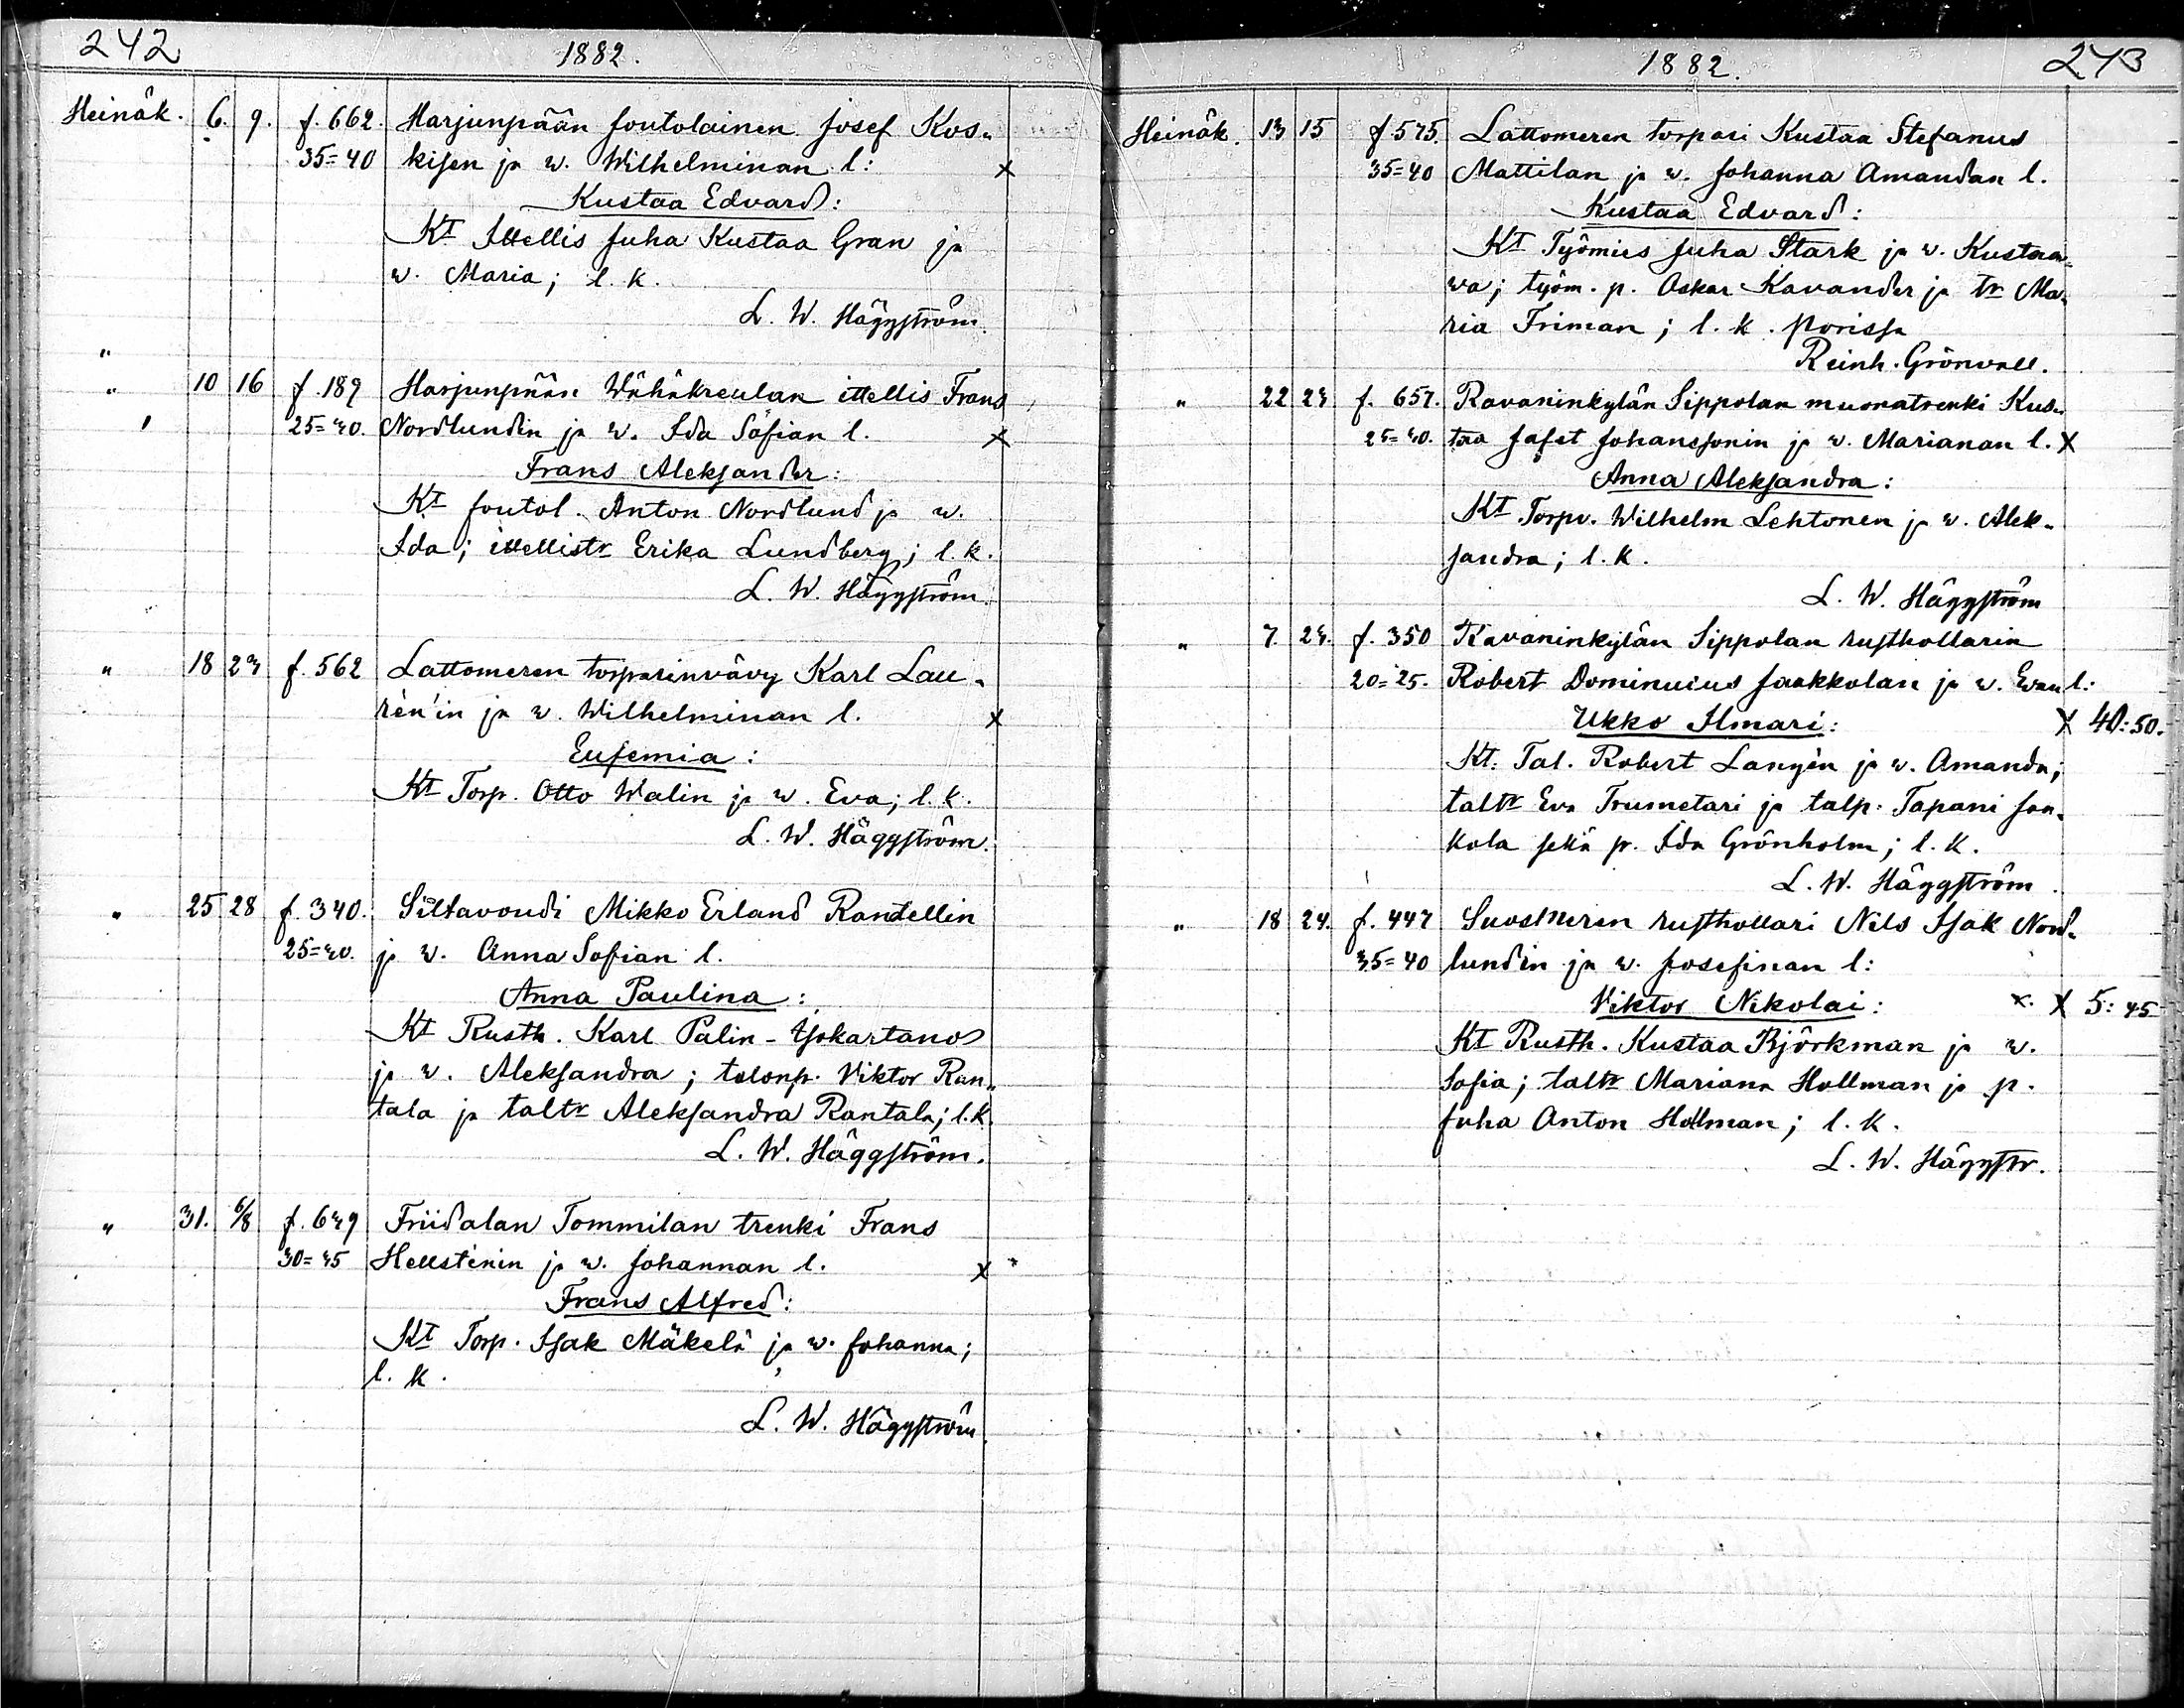 242
1882.
Heinäk. 6. 9. f. 662. Harjunpään joutolainen Josef Kos-
35=40 kisen ja w. Wilhelminan l: x
Kustaa Edvard:
Kt Ittellis Juha Kustaa Gran ja
w. Maria; l. k.
L. W. Häggström.
"
" 10 16 f. 189 Harjunpään Wähäkreulan ittellis Frans
25=30. Nordlundin ja w. Ida Sofian l. x
Frans Aleksander:
Kt joutol. Anton Nordlund ja w.
Ida; ittellistr Erika Lundberg; l. k.
L. W. Häggström.
" 18 23 f. 562 Lattomeren torparinvävy Karl Lau-
rén'in ja w. Wilhelminan l. x
Eufemia:
Kt Torp. Otto Walin ja w. Eva; l. k.
L. W. Häggström.
" 25 28 f. 340. Siltavoudi Mikko Erland Randellin
25=30. ja w. Anna Sofian l.
Anna Paulina:
Kt Rusth. Karl Palin-Yjokartano
ja w. Aleksandra; talonp. Viktor Ran-
tala ja taltr Aleksandra Rantala; l. k.
L. W. Häggström.
" 31. 6/8 f. 639 Friidalan Tommilan trenki Frans
30=35 Hellsténin ja w. Johannan l. x
Frans Alfred:
Kt Torp. Isak Mäkelä ja w. Johanna;
l. k.
L. W. Häggström.
1882.
243
Heinäk. 13 15 f. 575. Lattomeren torpari Kustaa Stefanus
35=40 Mattilan ja w. Johanna Amandan l.
Kustaa Edvard:
Kt Työmies Juha Stark ja w. Kustaa-
wa; työm. p. Oskar Kavander ja tr Ma-
ria Friman; l. k. Porissa
Reinh. Grönvall.
" 22 23 f. 657. Ravaninkylän Sippolan muonatrenki Kus-
25=30. taa Jafet Johanssonin ja w. Marianan l. x
Anna Aleksandra:
Kt Torpv. Wilhelm Lehtonen ja w. Alek-
sandra; l. k.
L. W. Häggström
" 7. 23. f. 350 Ravaninkylän Sippolan rusthollarin
20=25. Robert Dominicius Jaakkolan ja w. Evan l:
Ukko Ilmari: x 40:50.
Kt. Tal. Robert Langén ja w. Amanda;
taltr Eva Trumetari ja talp. Tapani Jaa-
kola sekä p. Ida Grönholm; l. k.
L. W. Häggström.
" 18 24. f. 447 Suosmeren rusthollari Nils Isak Nord-
35=40 lundin ja w. Josefinan l:
Viktor Nikolai: x. x 5:45
Kt Rusth. Kustaa Björkman ja w.
Sofia; taltr Mariana Hollman ja p.
Juha Anton Hollman; l. k.
L. W. Häggstr.